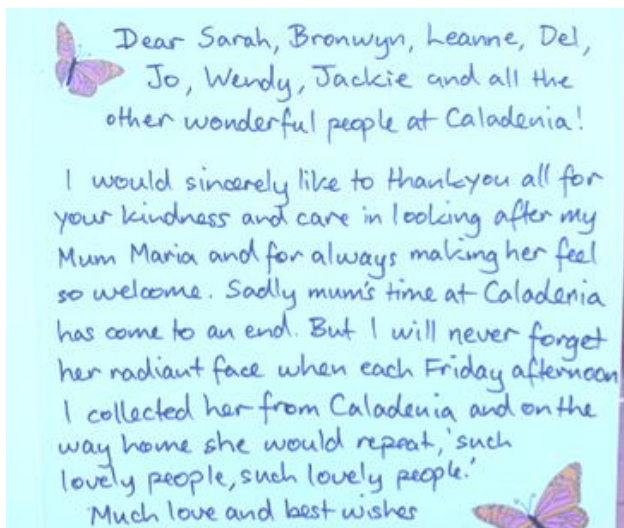 Dear Sarah, Bronwyn, Leanne, Del,
Jo, Wendy, Jackie and all the
other wonderful people at Caladenia!
I would sincerely like to thankyou all for
your kindness and care in looking after my
Mum Maria and for always making her feel
so welcome. Sadly mum's time at Caladenia
has come to an end. But I will never forget
her radiant face when each Friday afternoon
I collected her from Caladenia and on the
way home she would repeat, 'such
lovely people, such lovely people.'
Much love and best wishes